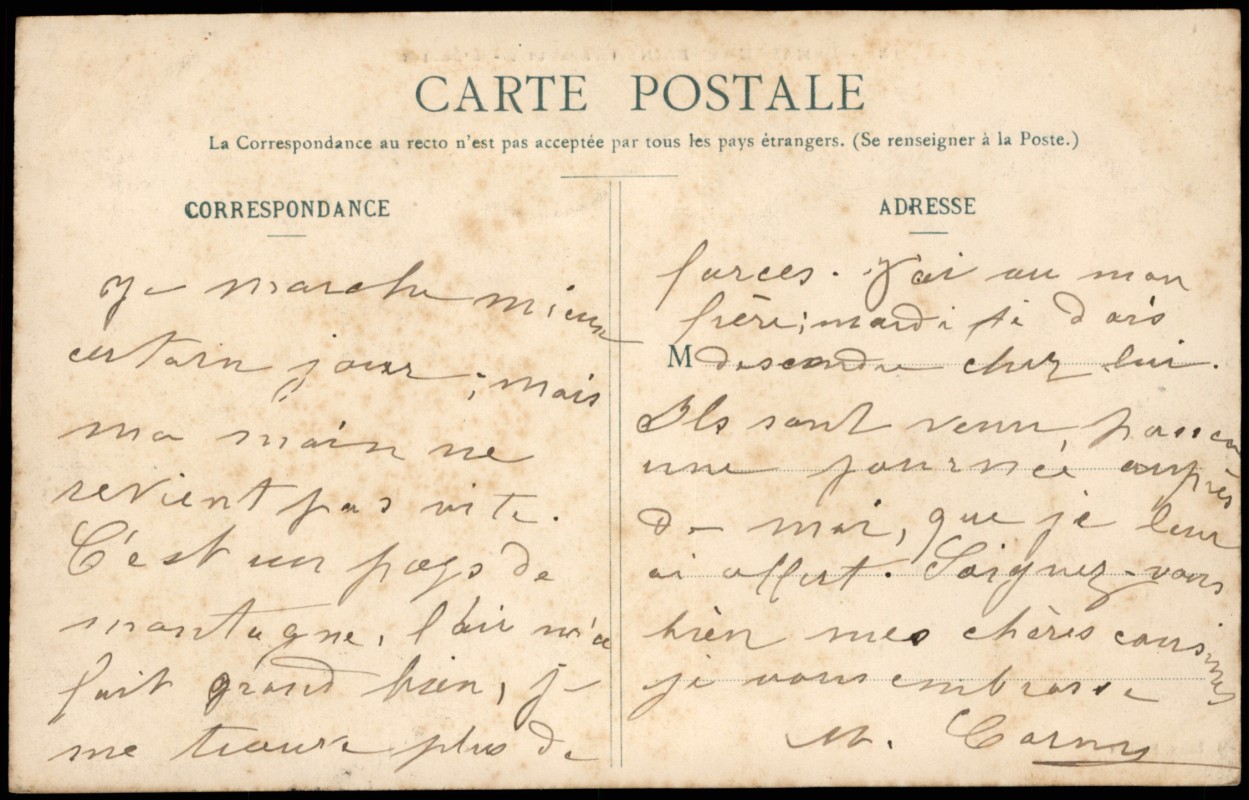 CARTE POSTALE
La Correspondance au recto n'est pas acceptée par tous les pays étrangers. (Se renseigner à la Poste.)
CORRESPONDANCE
Je marche mieux
certain jour ; mais
ma main ne
revient pas vite.
C'est un pays de
montagne, l'air m'a
fait grand bien, je
me trouve plus de
ADRESSE
forces. J'ai vu mon
frère; mardi je dois
M descendre chez lui.
Ils sont venu, passer
une journée auprès
de moi, que je leur
ai offert. Soignez-vous
bien mes chères cousines
je vous embrasse
M.